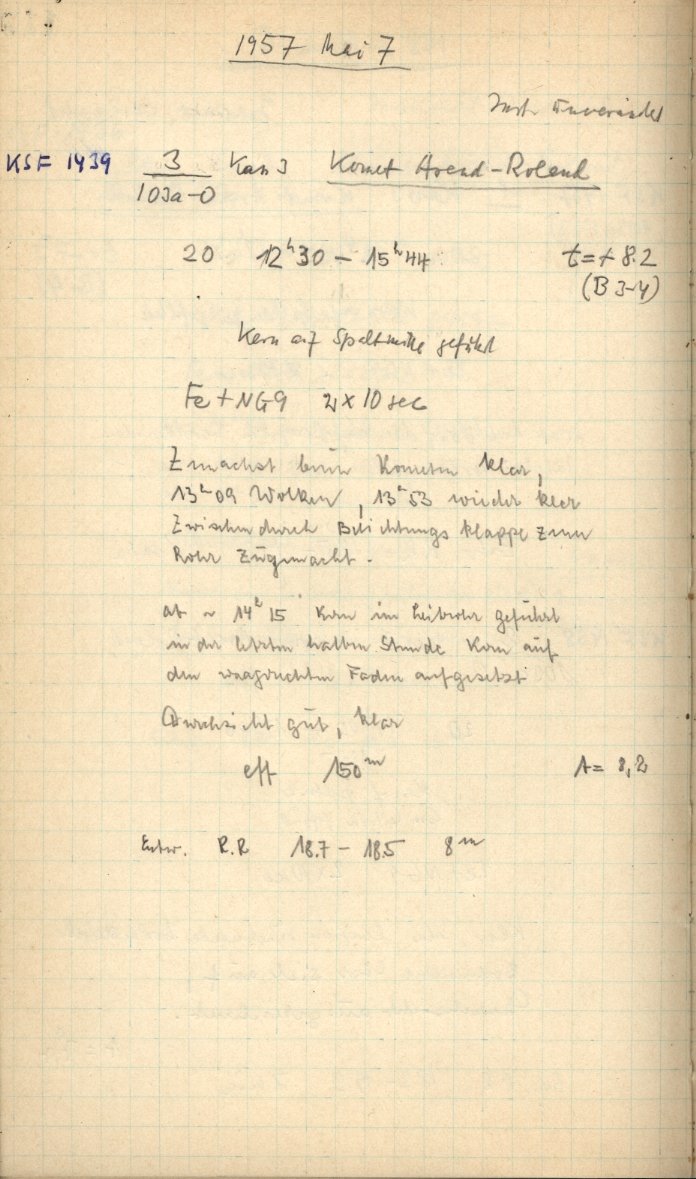 1957 Mai 7
Inst. unverändert
KSF 1439 3 Kass 3 Komet Arend-Roland
103a-O
20 12ʰ30 – 15ʰ44 t=+8.2
(B 3-4)
Kern auf Spaltmitte geführt
Fe + NG9 2 x 10 sec
Zunächst beim Kometen klar,
13ʰ09 Wolken, 13ʰ53 wieder klar
Zwischendurch Belichtungsklappe zum
Rohr zugemacht.
ab ~ 14ʰ15 Kern im Leitrohr geführt
in der letzten halben Stunde Kern auf
den waagrechten Faden aufgesetzt
Durchsicht gut, klar
eff 150ᵐ A= 8,2
Entw. R.R 18.7 – 18.5 8ᵐ